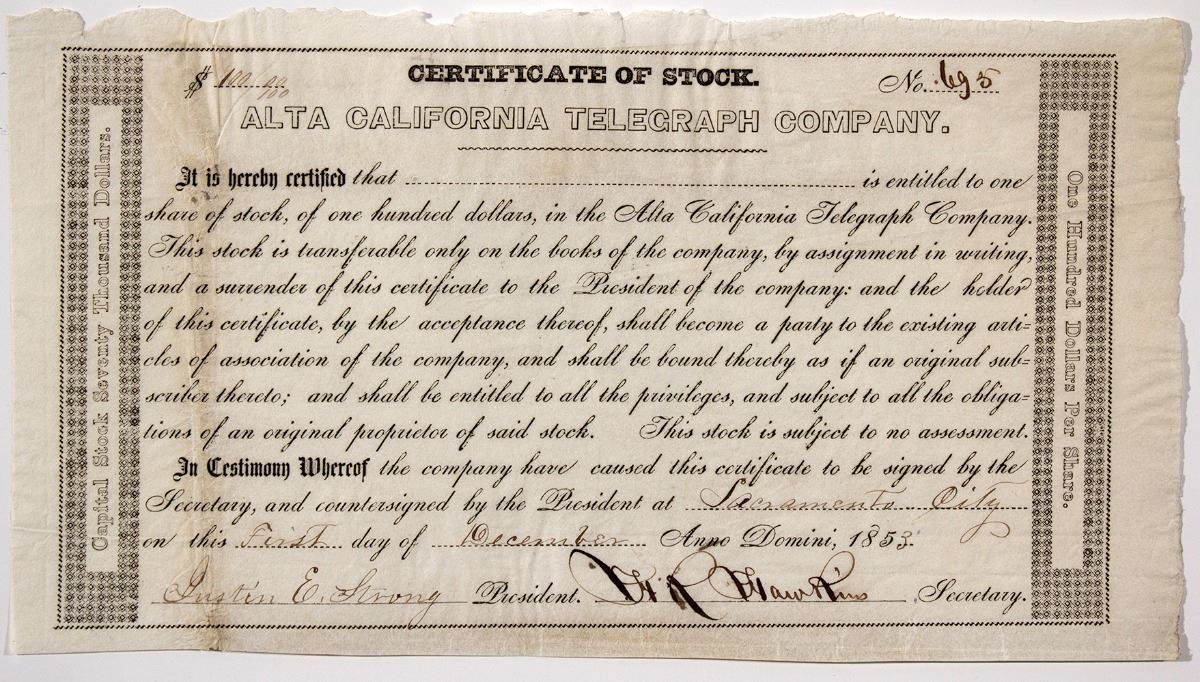 $ 100 00/100
CERTIFICATE OF STOCK.
No. 695
ALTA CALIFORNIA TELEGRAPH COMPANY.
It is hereby certified that is entitled to one
share of stock, of one hundred dollars, in the Alta California Telegraph Company.
This stock is transferable only on the books of the company, by assignment in writing,
and a surrender of this certificate to the President of the company: and the holder
of this certificate, by the acceptance thereof, shall become a party to the existing arti=
cles of association of the company, and shall be bound thereby as if an original sub=
scriber thereto; and shall be entitled to all the privileges, and subject to all the obliga=
tions of an original proprietor of said stock. This stock is subject to no assessment.
In Testimony Whereof the company have caused this certificate to be signed by the
Secretary, and countersigned by the President at Sacramento City
on this First day of December Anno Domini, 1853
Justin E. Strong President. Hawkins Secretary.
Capital Stock Seventy Thousand Dollars.
One Hundred Dollars Per Share.